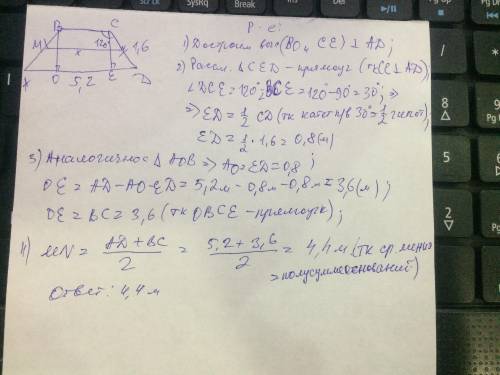 B C
M 120° 1,6
A O 5,2 E D
Р-е:
1) Достроим выс(BO и CE) ⊥ AD;
2) Рассм. △CED - прямоуг (тк CE ⊥ AD),
∠DCE = 120° - ∠BCE = 120° - 90° = 30°; =>
=> ED = 1/2 CD (тк катет п/в 30° = 1/2 гипот);
ED = 1/2 · 1,6 = 0,8 (м)
3) Аналогично △ AOB => AO = ED = 0,8 ;
OE = AD - AO - ED = 5,2м - 0,8м - 0,8м = 3,6 (м) ;
OE = BC = 3,6 (тк OBCE - прямоуг);
4) MN = AD + BC / 2 = 5,2 + 3,6 / 2 = 4,4 м (тк ср. линия
= полусумме оснований)
Ответ: 4,4 м
SysRq
Break
Pause
Delete
Home
8
9
Pg Up
5
6
2
3
Pg Dn